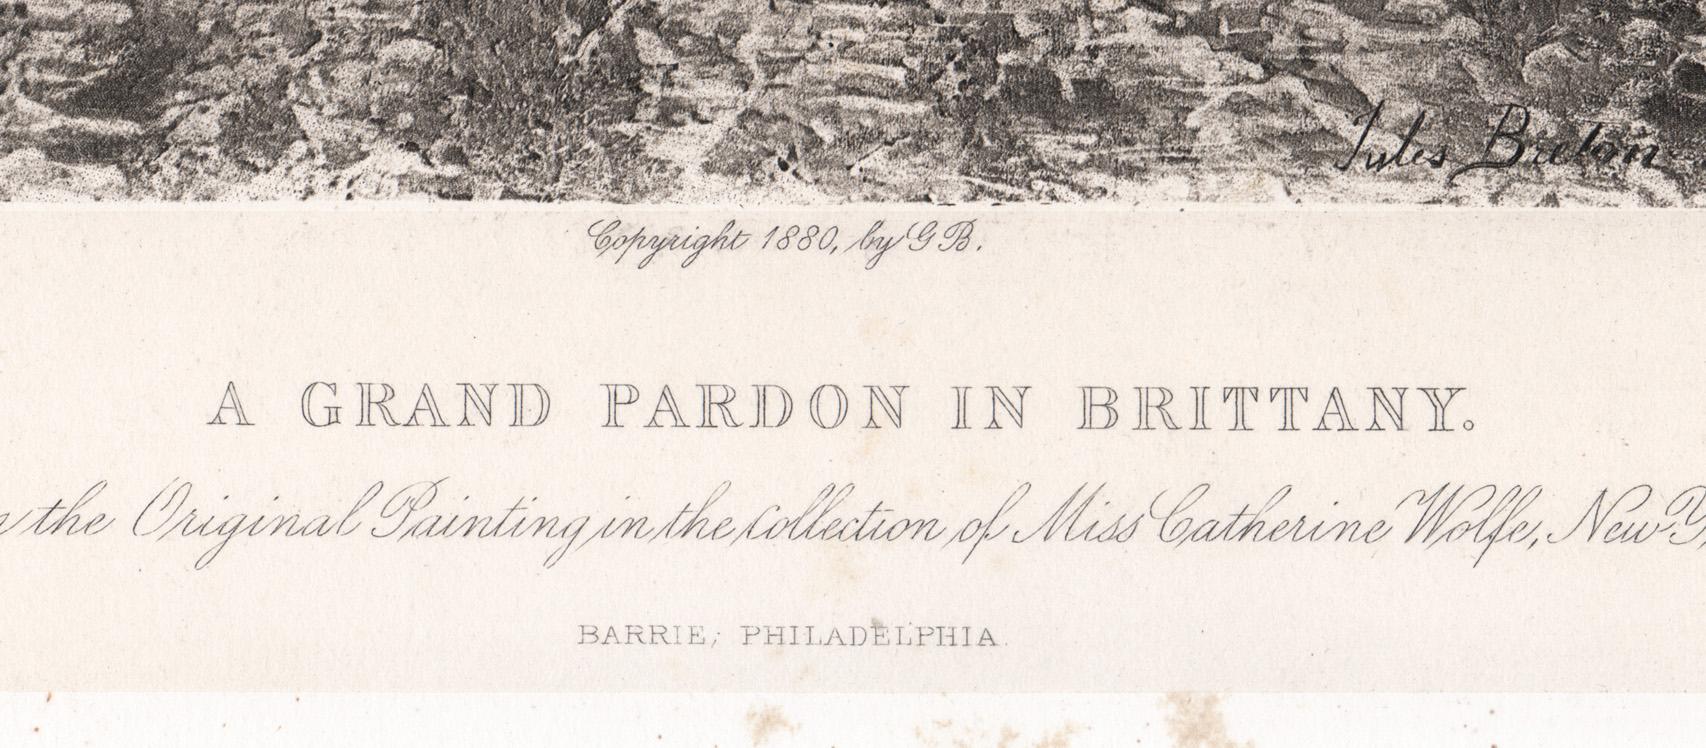 Jules Breton
Copyright 1880, by G B.
A GRAND PARDON IN BRITTANY.
the Original Painting in the collection of Miss Catherine Wolfe, New
BARRIE, PHILADELPHIA.